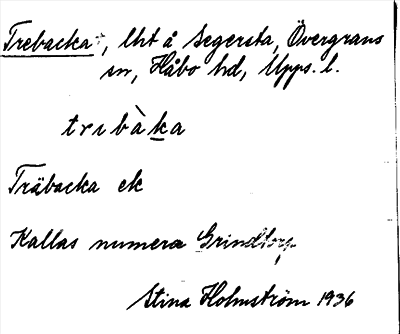 Trebacka +, lht å Segersta, Övergrans
sn, Håbo hd, Upps. l.
trıbàka
Träbacka ek
Kallas numera Grindtorp
Stina Holmström 1936